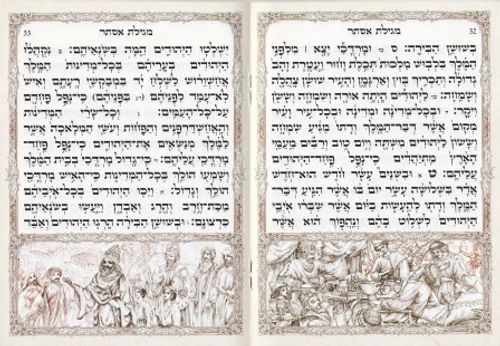 מגילת אסתר 32
בשושן הבירה: ס ומרדכי יצא | מלפני
המלך בלבוש מלכות תכלת וחור ועטרת זהב
גדולה ותכריך בוץ וארגמן והעיר שושן צהלה
ושמחה: ליהודים היתה אורה ושמחה וששן
ויקר: ובכל־מדינה ומדינה ובכל־עיר ועיר
מקום אשר דבר־המלך ודתו מגיע שמחה
וששון ליהודים משתה ויום טוב ורבים מעמי
הארץ מתיהדים כי־נפל פחד־היהודים
עליהם: ט ובשנים עשר חדש הוא־חדש
אדר בשלושה עשר יום בו אשר הגיע דבר־
המלך ודתו להעשות ביום אשר שברו איבי
היהודים לשלוט בהם ונהפוך הוא אשר
33 מגילת אסתר
ישלטו היהודים המה בשנאיהם: נקהלו
היהודים בעריהם בכל־מדינות המלך
אחשורוש לשלח יד במבקשי רעתם ואיש
לא־עמד לפניהם כי־נפל פחדם
על־כל־העמים: וכל־שרי המדינות
והאחשדרפנים והפחות ועשי המלאכה אשר
למלך מנשאים את־היהודים כי־נפל פחד־
מרדכי עליהם: כי־גדול מרדכי בבית המלך
ושמעו הולך בכל־המדינות כי־האיש מרדכי
הולך וגדול: ויכו היהודים בכל־איביהם
מכת־חרב והרג ואבדן ויעשו בשנאיהם
כרצונם: ובשושן הבירה הרגו היהודים ואבד